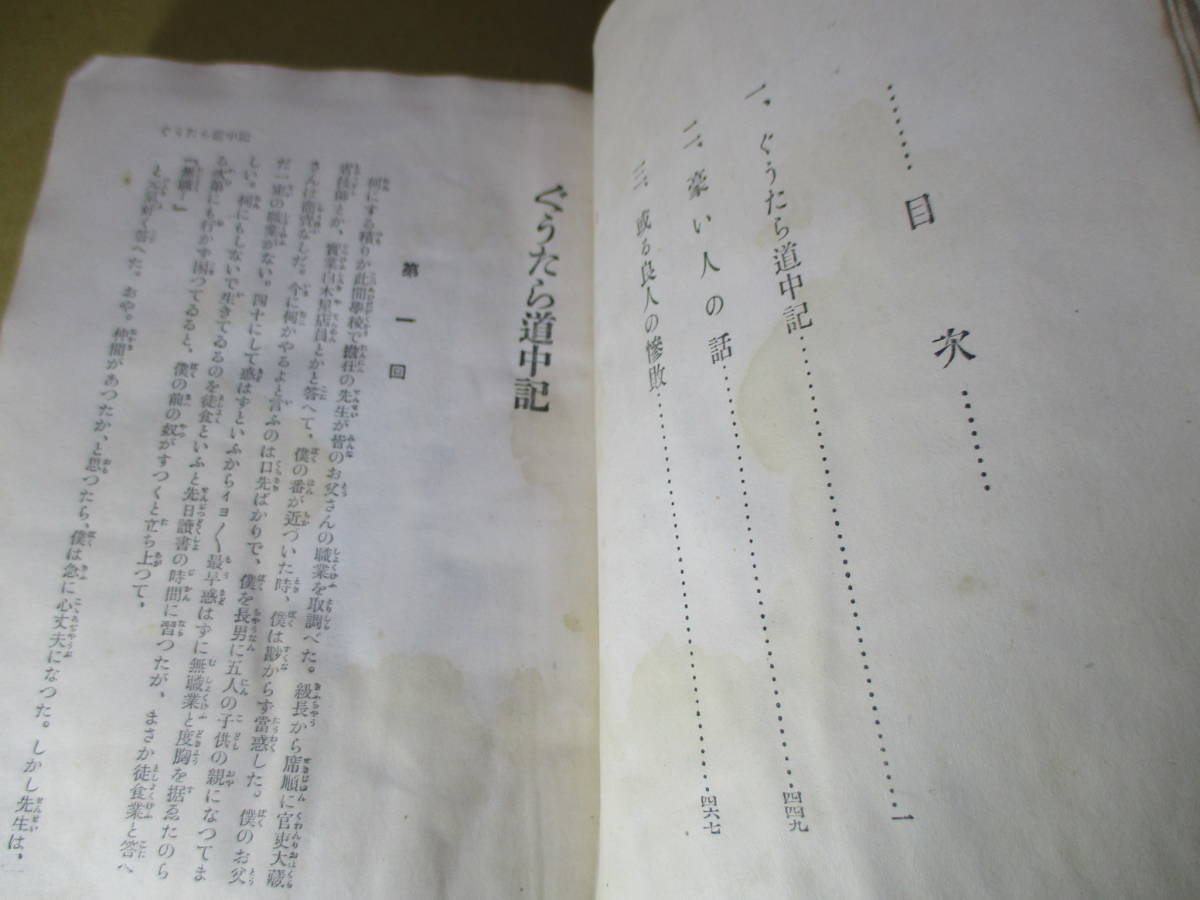 目次
一、ぐうたら道中記……一
二、豪い人の話……四四九
三、或る良人の慘敗……四六七
ぐうたら道中記
ぐうたら道中記
第一回
何にする積りか此間學校で擔任の先生が皆のお父さんの職業を取調べた。級長から席順に官吏大藏
省技師とか、實業白木屋店員とかと答へて、僕の番が近づいた時、僕は尠からず當惑した。僕のお父
さんは商賣なしだ。今に何かやるよと言ふのは口先ばかりで、僕を長男に五人の子供の親になつてま
だ一定の職業がない。四十にして惑はずといふからイヨ〳〵最早惑はずに無職業と度胸を据ゑたのら
しい。何にもしないで生きてゐるのを徒食といふと先日讀書の時間に習つたが、まさか徒食業と答へ
る次第にも行かず困つてゐると、僕の前の奴がすつくと立ち上つて、
『無職！』
と元氣好く答へた。おや。仲間があつたか、と思つたら、僕は急に心丈夫になつた。しかし先生は、